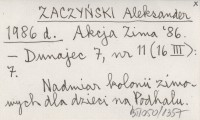 ZACZYŃSKI Aleksander
1986 d. Akcja Zima '86.
– Dunajec 7, nr 11 (16 III):
7.
Nadmiar kolonii zimo-
wych dla dzieci na Podhalu.